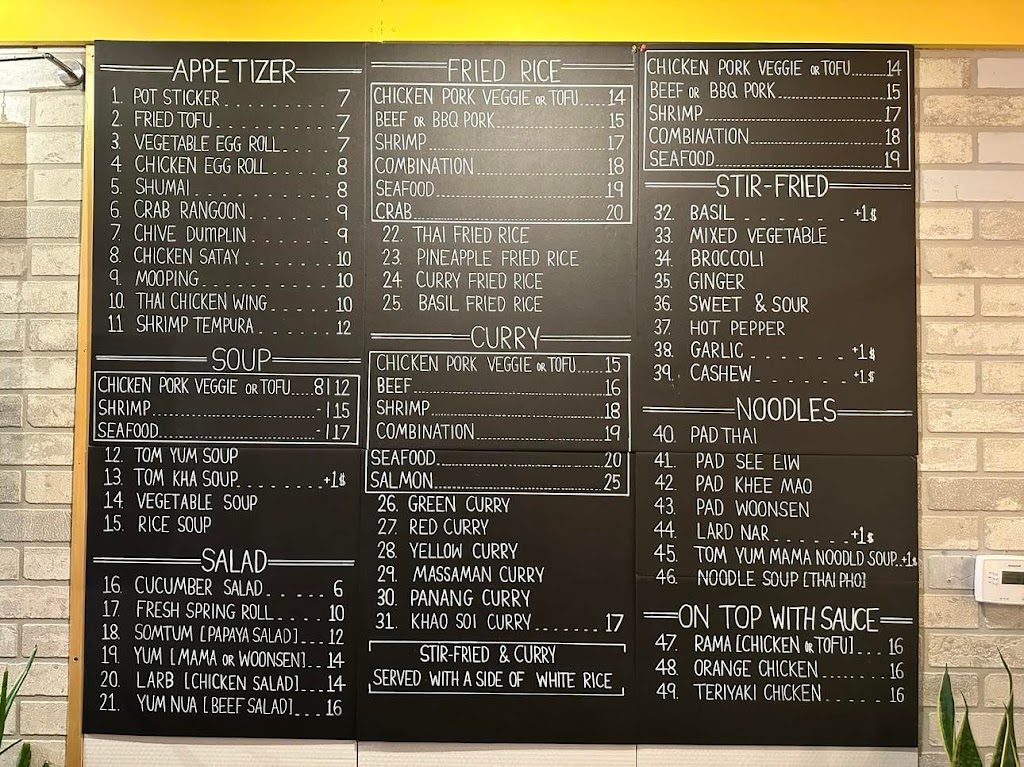 APPETIZER
1. POT STICKER........ 7
2. FRIED TOFU........ 7
3. VEGETABLE EGG ROLL... 7
4. CHICKEN EGG ROLL.... 8
5. SHUMAI.......... 8
6. CRAB RANGOON...... 9
7. CHIVE DUMPLIN...... 9
8. CHICKEN SATAY...... 10
9. MOOPING......... 10
10. THAI CHICKEN WING.... 10
11 SHRIMP TEMPURA..... 12
SOUP
CHICKEN PORK VEGGIE OR TOFU....8|12
SHRIMP........ -|15
SEAFOOD........ -|17
12. TOM YUM SOUP
13. TOM KHA SOUP........+1$
14. VEGETABLE SOUP
15. RICE SOUP
SALAD
16. CUCUMBER SALAD...... 6
17. FRESH SPRING ROLL.... 10
18. SOMTUM [PAPAYA SALAD]... 12
19. YUM [MAMA OR WOONSEN].. 14
20. LARB [CHICKEN SALAD]... 14
21. YUM NUA [BEEF SALAD]... 16
FRIED RICE
CHICKEN PORK VEGGIE OR TOFU.....14
BEEF OR BBQ PORK........15
SHRIMP........17
COMBINATION........18
SEAFOOD........19
CRAB........20
22. THAI FRIED RICE
23. PINEAPPLE FRIED RICE
24. CURRY FRIED RICE
25. BASIL FRIED RICE
CURRY
CHICKEN PORK VEGGIE OR TOFU.....15
BEEF........16
SHRIMP........18
COMBINATION........19
SEAFOOD........20
SALMON........25
26. GREEN CURRY
27. RED CURRY
28. YELLOW CURRY
29. MASSAMAN CURRY
30. PANANG CURRY
31. KHAO SOI CURRY....... 17
STIR-FRIED & CURRY
SERVED WITH A SIDE OF WHITE RICE
CHICKEN PORK VEGGIE OR TOFU.......14
BEEF OR BBQ PORK........15
SHRIMP........17
COMBINATION........18
SEAFOOD........19
STIR-FRIED
32. BASIL....... +1$
33. MIXED VEGETABLE
34. BROCCOLI
35. GINGER
36. SWEET & SOUR
37. HOT PEPPER
38. GARLIC...... +1$
39. CASHEW...... +1$
NOODLES
40. PAD THAI
41. PAD SEE EIW
42. PAD KHEE MAO
43. PAD WOONSEN
44. LARD NAR...... +1$
45. TOM YUM MAMA NOODLD SOUP..+1$
46. NOODLE SOUP [THAI PHO]
ON TOP WITH SAUCE
47. RAMA [CHICKEN OR TOFU]... 16
48. ORANGE CHICKEN........ 16
49. TERIYAKI CHICKEN..... 16